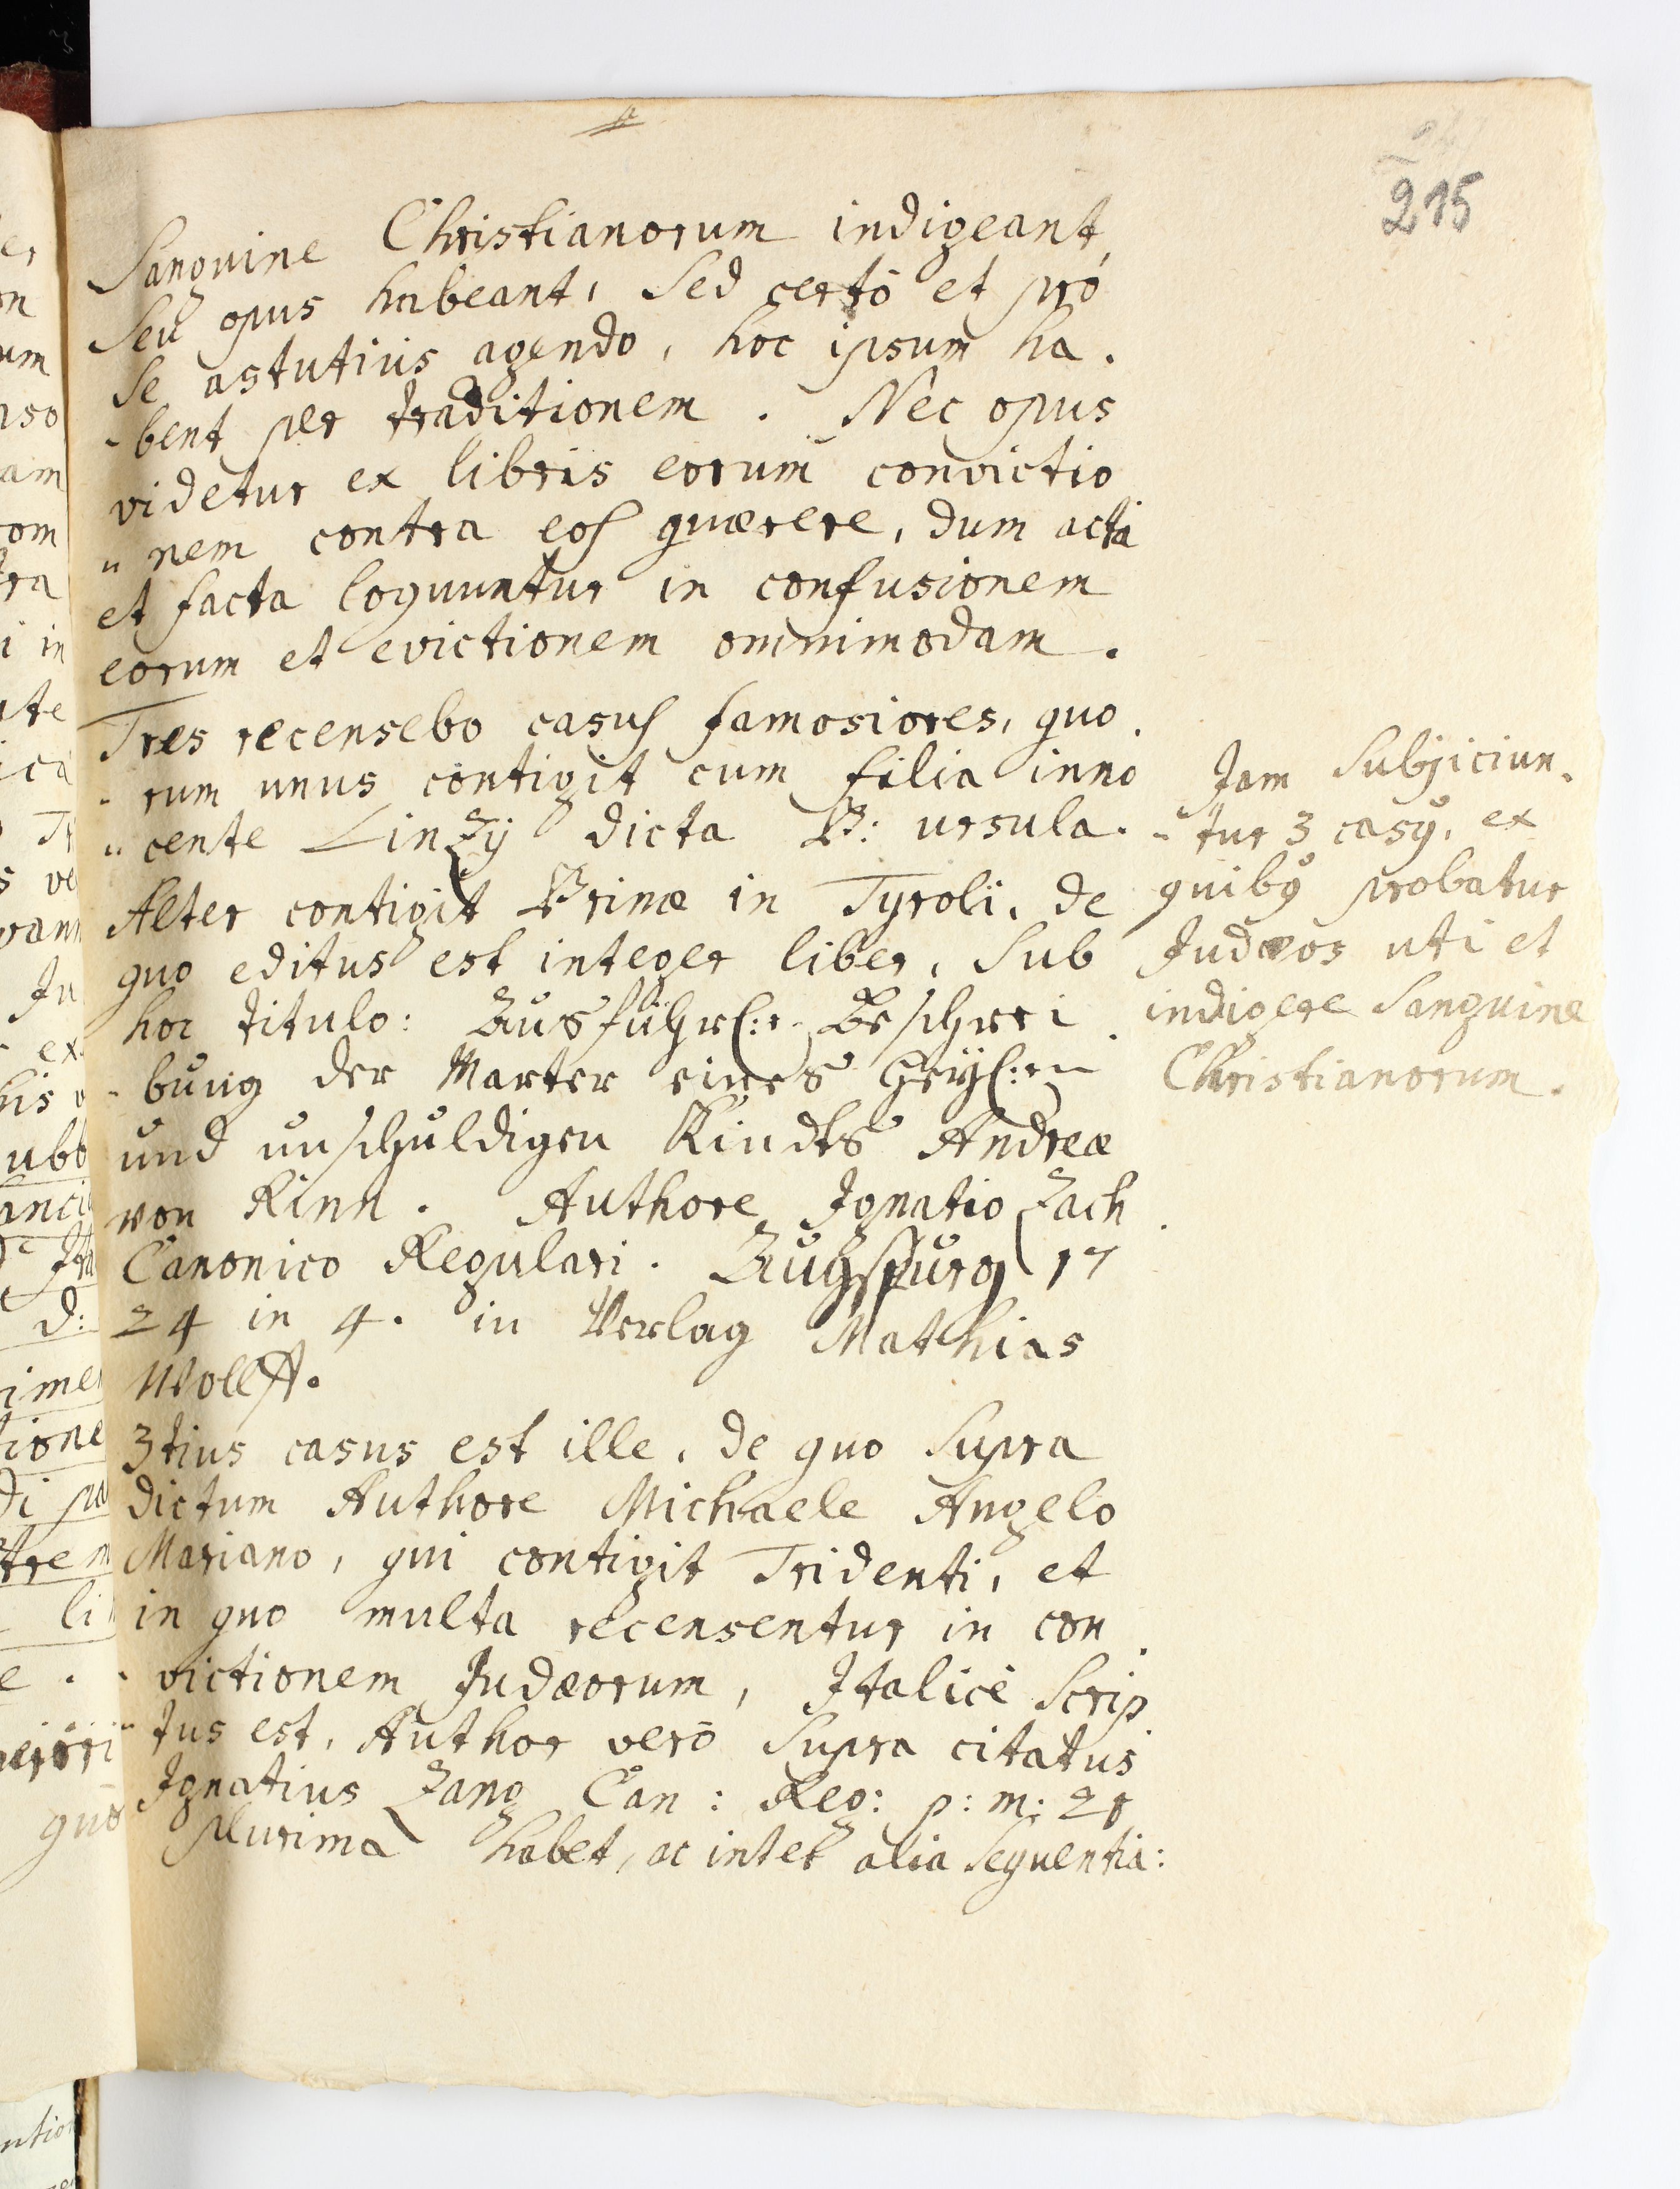 215
Sanguine Christianorum indigeant,
Seu opus habeant, Sed certò et pro
se astutius agendo, hoc ipsum ha.
-bent per traditionem. Nec opus
videtur ex libris eorum convictio
"nem contra eos quærere, dum acta
et facta loquuntur in confusionem
eorum et evictionem omnimodam.
Tres recensebo casus famosiores, quo.
-rum unus contigit cum filia inno
"cente Linzij dicta B: ursula.
Alter contigit Rinæ in Tyroli, de
quo editus est integer liber, Sub
hoc titulo: Ausführl:r Beschrei.
-bung der Marter eines Heyl:en
und unschuldigen Kindts Andreæ
von Rinn. Authore Ignatio Zach.
Canonico Regulari. Augspurg 17
24 in 4. in Verlag Mathias
Wolff.
3tius casus est ille, de quo Supra
dictum Authore Michaele Angelo
Mariano, qui contigit Tridenti, et
in quo multa recensentur in con.
-victionem Judæorum, Italicè Scrip
"tus est, Author verò Supra citatus
Ignatius Zang Can: Reg: p: m: 21
plurima habet, ac inter alia Sequentia:
Jam Subjiciun.
-tur 3 casy, ex
quiby probatur
Judæos uti et
indigere Sanguine
Christianorum.